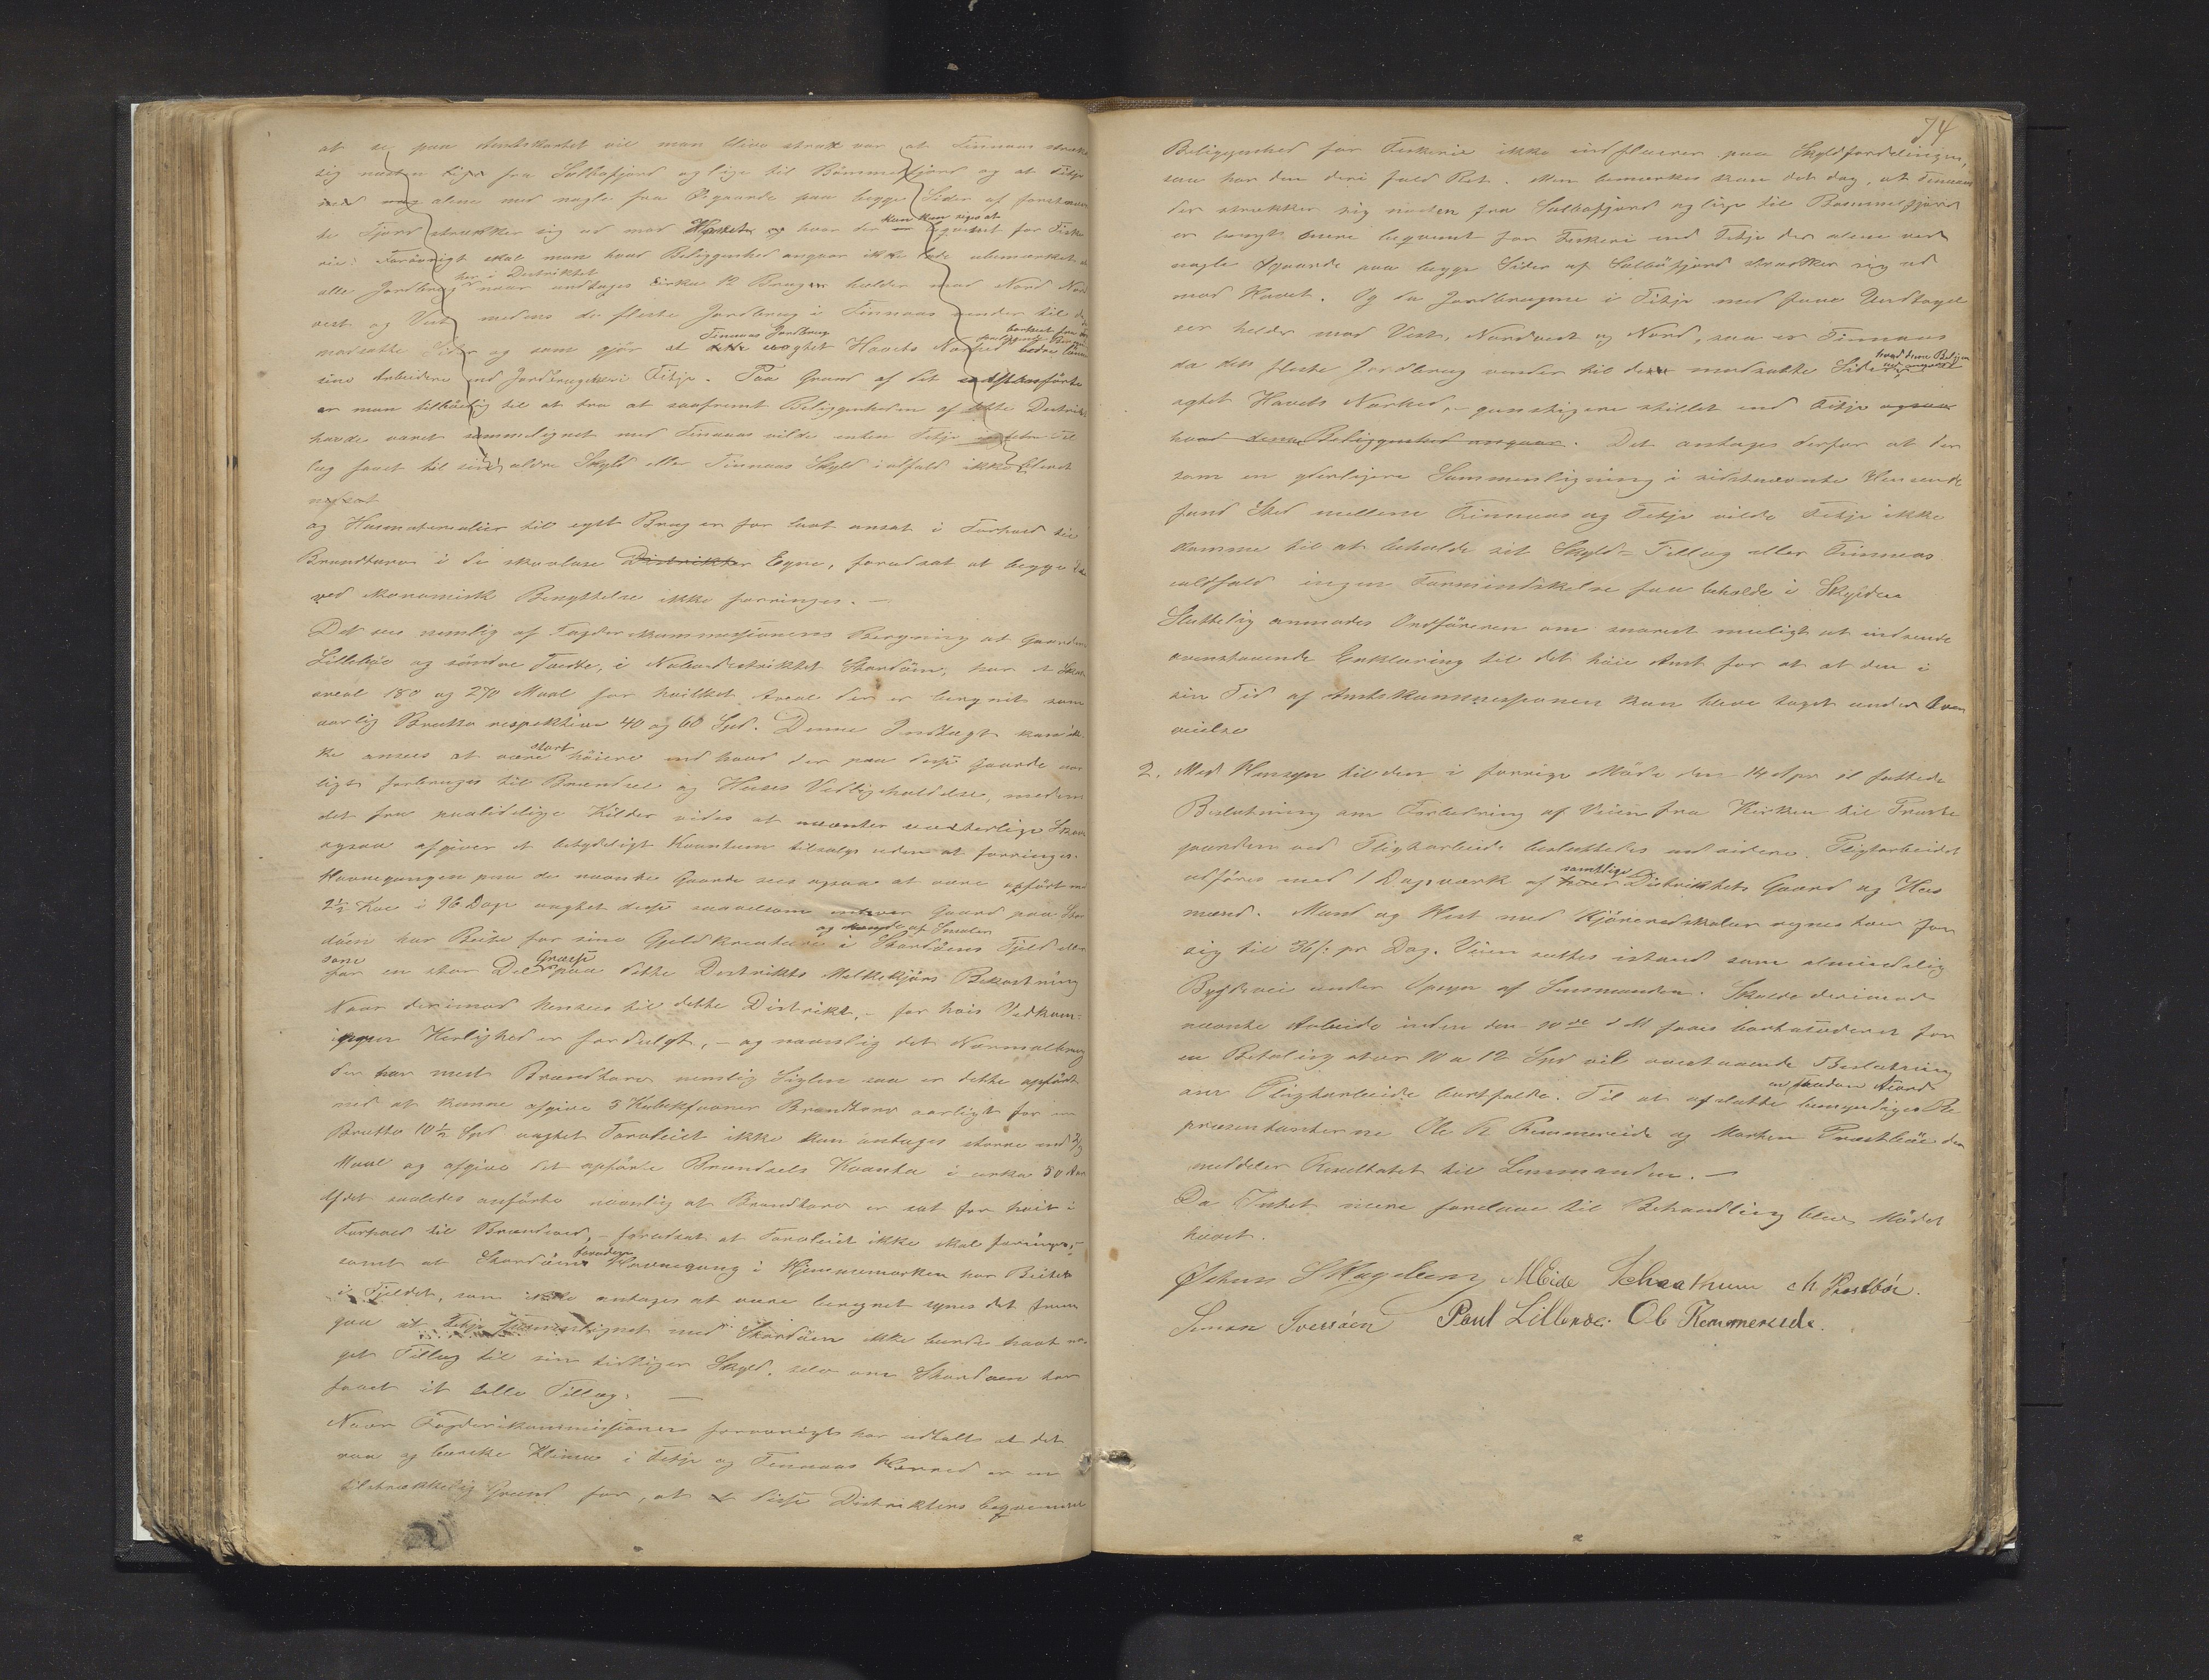 at se paa Amtskartet vil man blive straks var at Finnaas strække
sig næsten lige fra Selbøfjord og lige til Bömmelfjord og at Fitje
alene med nogle faa Øgaarde paa begge Sider af forstnævn
te Fjord strækker sig ud mod Havet og hvor der kun kan siges at bequemt for Fiske
rie. Forövrigt skal man hvad Beliggenhed angaar ikke lade ubemærket at
alle Jordbrug her i Distriktet naar undtages cirka 12 Brugere helder mod Nord Nord
vest og Vest medens de fleste Jordbrug i Finnaas vender til de
modsatte Sider og som gjör at Finnaas Jordbrug uagtet Havets Nærhed bedre lönne
sine Arbeidere end Jordbrugeren i Fitje. Paa Grund af det anförte
er man tilböielig til at tro at saafremt Beliggenheden af dette Distrikt
havde været sammelignet med Finnaas vilde enten Fitje Til
læg faaet til sin ældre Skyld eller Finnaas Skyld ialfald ikke blevet
nedsat
og Husmaterialier til eget Brug er for lavt ansat i Forhold til
Brændtorv i de skovløse Distrikter Egne, forudsat at begge De
ved økonomisk Benyttelse ikke forringes. —
Det sees nemlig af Fogderikommissionens Beregning at Gaardene
Lillebøe og söndre Tveite, i Nabodistriktet Stordöen, har et Skov
areal 180 og 270 Maal for hvilket Areal der er beregnet som
aarlig Brutto respektive 40 og 60 Spd. Denne Indtægt kan ik
ke ansees at være stort höiere end hvad der paa disse Gaarde aar
ligt forbruges til Brændsel og Huses Vedligeholdelse, medens
det fra paalidelige Kilder vides at nævnte Skove
ogsaa afgiver et betydeligt Kvantum tilsalgs uden at forringes.
Havnegangen paa de nævnte Gaarde sees ogsaa at være opfört med
2½ Koe i 96 Dage uagtet disse saavelsom enhver Gaard paa Stor
döen har Beite for sine Gjeldkreature og en Deel af Smalen i Stordöens Fjeld eller
som for en stor Del Græsse paa dette Distrikts Melkekjörs Bekostning
Naar derimod hensees til dette Distrikt, — for hvis Vedkom=
mende Herlighed er fordulgt, — og navnlig det Normalbrug
der har mest Brændtorv nemlig Siglen saa er dette opfört
med at kunne afgive 3 Kubikfavner Brændtorv aarligt for en
Brutto 10½ Spd uagtet Torvleiet ikke kan antages större end 2/3
Maal og afgive det opförte Brændsels Kvanta i cirka 50 Aar
Af det saaledes anförte navnlig at Brændtorv er sat for höit i
Forhold til Brændeved, — forudsat at Torvleiet ikke skal foringes, —
samt at Stordöens foruden Havnegang i Hjemmemarken har Beitet
i Fjeldet, som ikke antages at være beregnet synes det frem
gaa at Fitje sammenlignet med Stordöen ikke burde havt no
get Tillæg til sin tidligere Skyld, selv om Stordöen har
faaet et lille Tillæg. —
Naar Fogderikommissionen forøvrigt har udtalt at det
raa og barske Klima i Fitje og Finnaas Herred er en
tilstrækkelig Grund for, at disse Distrikters beqvemme
74
Beliggenhed for Fiskerie ikke indflueres paa Skyldfordelingen,
saa har den deri fuld Ret. Men bemærkes kan det dog, at Finnaas
der strækker sig næsten fra Selbøfjord og lige til Bømmelfjord
er langt mere beqvemt for Fiskeri end Fitje der alene ved
nogle Øgaarde paa begge Sider af Selböfjord strækker sig ud
mod Havet. Og da Jordbrugene i Fitje med faae Undtagel
ser helder mod Vest, Nordvest og Nord, saa er Finnaas
da dets fleste Jordbrug vender til den modsatte Side hvad denne Beliggen
hed angaar
agtet Havets Nærhed, — gunstigere stillet end Fitje ogsaa
hvad denne Beliggenhed angaar. Det antages derfor at der
som en yderligere Sammenligning i sidstnævnte Henseende
fand Sted mellem Finnaas og Fitje vilde Fitje ikke
komme til at beholde sit Skyld-Tillæg eller Finnaas
ialdfald ingen Formindskelse faa beholde i Skylden
Sluttelig anmodes Ordföreren om snarest muligt at indsende
ovenstaaende Erklæring til det höie Amt for at at den i
sin Tid af Amtskommissionen kan bleve taget under Over
veielse
2. Med Hensyn til den i forrige Möde den 14 Apr d fattede
Beslutning om Forbedring af Veien fra Kirken til Præste
gaarden ved Pligtarbeide besluttedes endvidere. Pligtarbeidet
udföres med 1 Dagsværk af hver samtlige Distriktets Gaard og Hus
mænd. Mand og Hest med Kjöreredskaber regnes hver for
sig til 36 s: pr Dag. Veien sættes istand som almindelig
Bygdevei under Opsyn af Lensmanden. Skulde derimod
nævnte Arbeide inden den 20de d M faaes bortakkorderet for
en Betaling af ca 10 a 12 Spd vil ovenstaaende Beslutning
om Pligtarbeide bortfalde. Til at afslutte en saadan Akord bemyndiges Re
præsentanterne Ole K Remmereide og Morten Prestböe der
meddeler Resultatet til Lensmanden. —
Da Intet mere forelaae til Behandling blev Mödet
hævet.
S Hageberg M Eide M. Prestböe.
Simon Paul Lillebøe. Ole Remmereide.